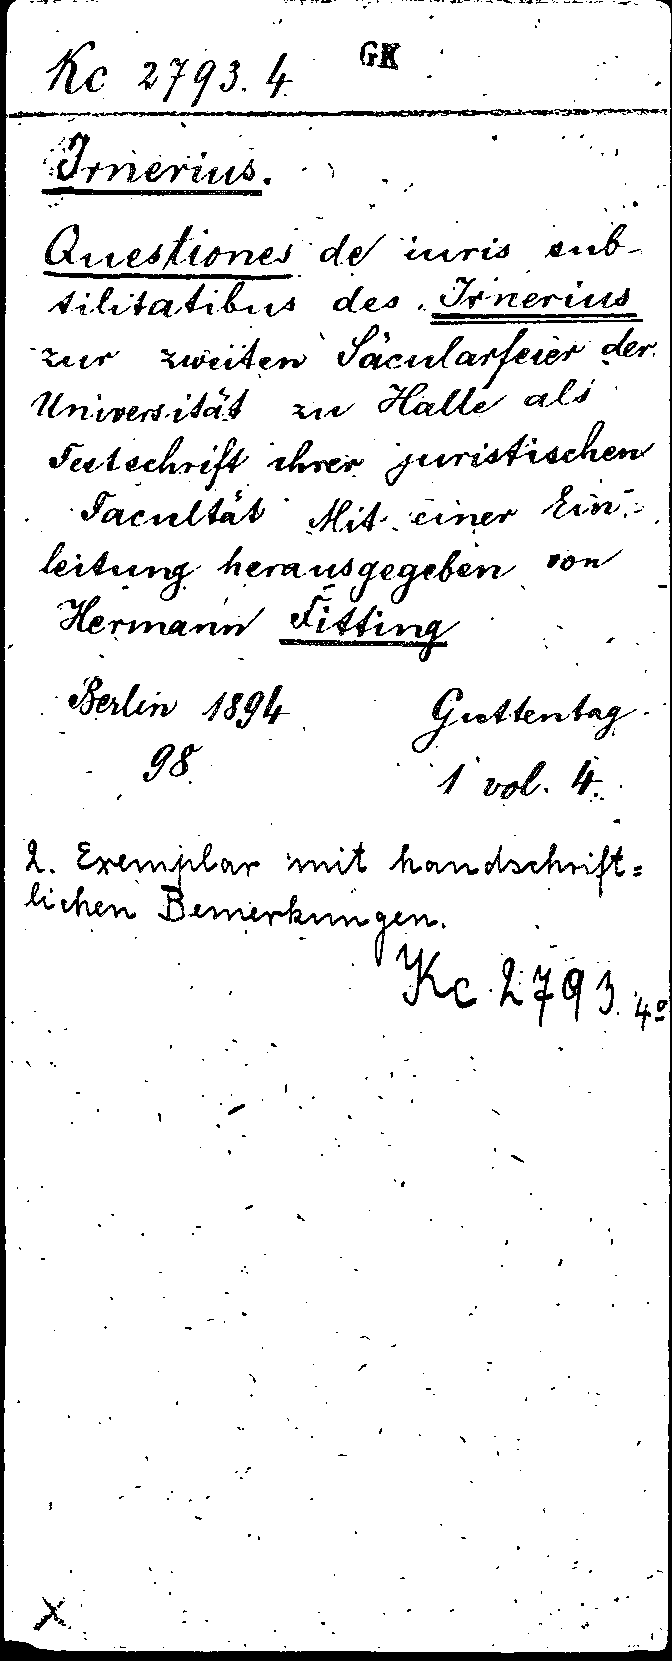 Kc 2793. 4 GK
Irnerius.
Questiones de iuris sub-
tilitatibus des Irnerius
zur zweiten Säcularfeier der
Universität zu Halle als
Festschrift ihrer juristischen
Facultät Mit einer Ein-
leitung herausgegeben von
Hermann Fitting
Berlin 1894 Guttentag
98 1 vol. 4.
2. Exemplar mit handschrift=
lichen Bemerkungen.
Kc 2793. 4º
X